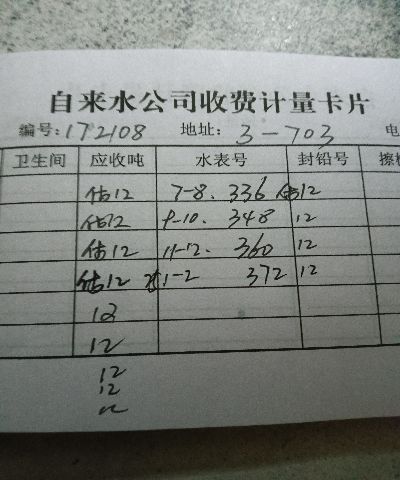 自来水公司收费计量卡片
编号:172108 地址: 3-703 电
卫生间 应收吨 水表号 封铅号 擦
估12 7-8. 336 估12
估12 9-10. 348 12
估12 11-12. 360 12
估12 1-2 372 12
12
12
12
12
12